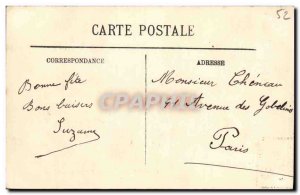 52
CARTE POSTALE
CORRESPONDANCE
ADRESSE
Bonne fête
Bons baisers
Suzanne
Monsieur Chéneau
Avenue des Gobelins
Paris